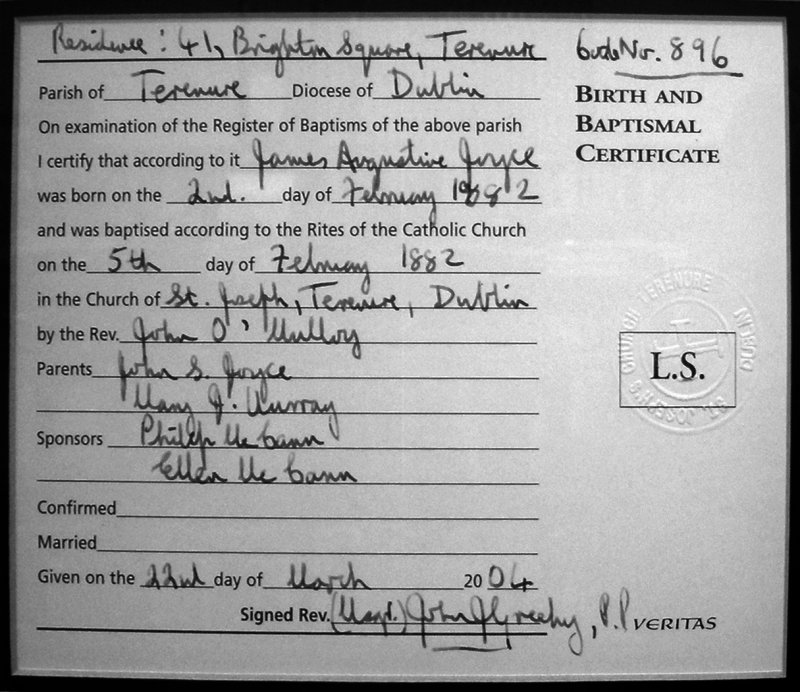 Residence: 41, Brighton Square, Terenure
Code No. 896
BIRTH AND
BAPTISMAL
CERTIFICATE
Parish of Terenure Diocese of Dublin
On examination of the Register of Baptisms of the above parish
I certify that according to it James Augustine Joyce
was born on the 2nd. day of February 1882
and was baptised according to the Rites of the Catholic Church
on the 5th day of February 1882
in the Church of St. Joseph, Terenure, Dublin
by the Rev. John O'Mulloy
Parents John S. Joyce
Mary J. Murray
Sponsors Philip Mc Cann
Ellen Mc Cann
Confirmed
Married
Given on the 22nd day of March 2004
Signed Rev. (Msgr.) John , P.P
VERITAS
L.S.
CHURCH TERENURE DUBLIN